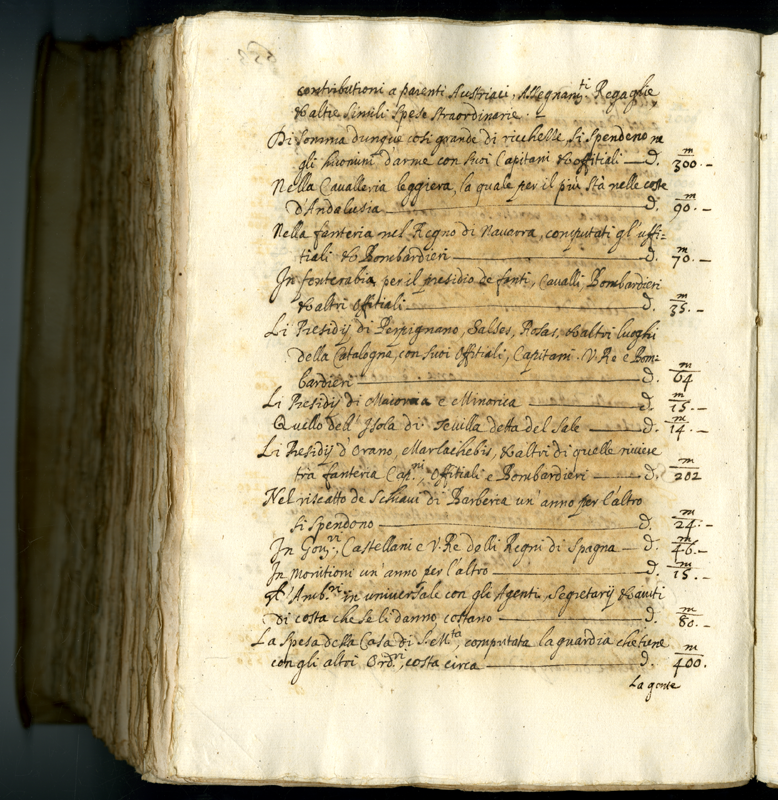 contributioni a parenti Austriaci, Assegnamti Regaglie,
& altre simili spese straordinarie.
Di somma dunque così grande di ricchesse si spendeno in
gli huomini d'arme con suoi Capitani & offitiali — d. 300 m. -
Nella Cavalleria leggiera, la quale per il più stà nelle coste
d'Andalusia — d. 90 m. -
Nella fanteria nel Regno di Navarra, computati gl'uffi-
tiali & Bombardieri — d. 70 m. -
In fonterabia per il presidio de fanti, Cavalli Bombardieri
& altri offitiali — d. 35 m. -
Li Presidij di Perpignano, Salses, Rosas, & altri luoghi
della Catalogna, con suoi offitiali, Capitani. V.Re e Bom-
bardieri — d. 64 m
Li Presidij di Maiorica e Minorica — d. 15 m. -
Quello dell'Isola di Sevilla detta del Sale — d. 14 m. -
Li Presidij d'Orano, Marlachebis, & altri di quelle riviere
trà fanteria Cap.ni, offitiali e Bombardieri — d. 202 m
Nel riscatto de Schiavi di Barberia un'anno per l'altro
si spendono — d. 24 m. -
In Gov.ri, Castellani e V.Re delli Regni di Spagna — d. 46 m. -
In monitioni un'anno per l'altro — d. 15 m. -
Gl'Amb.ri in universale con gli Agenti, Segretarij & aiuti
di costa che se li danno, costano — d. 80 m. -
La spesa della Casa di S. M.tà, computata la guardia che tiene
con gli altri Ord.ri, costa circa — d. 400 m.
La gente